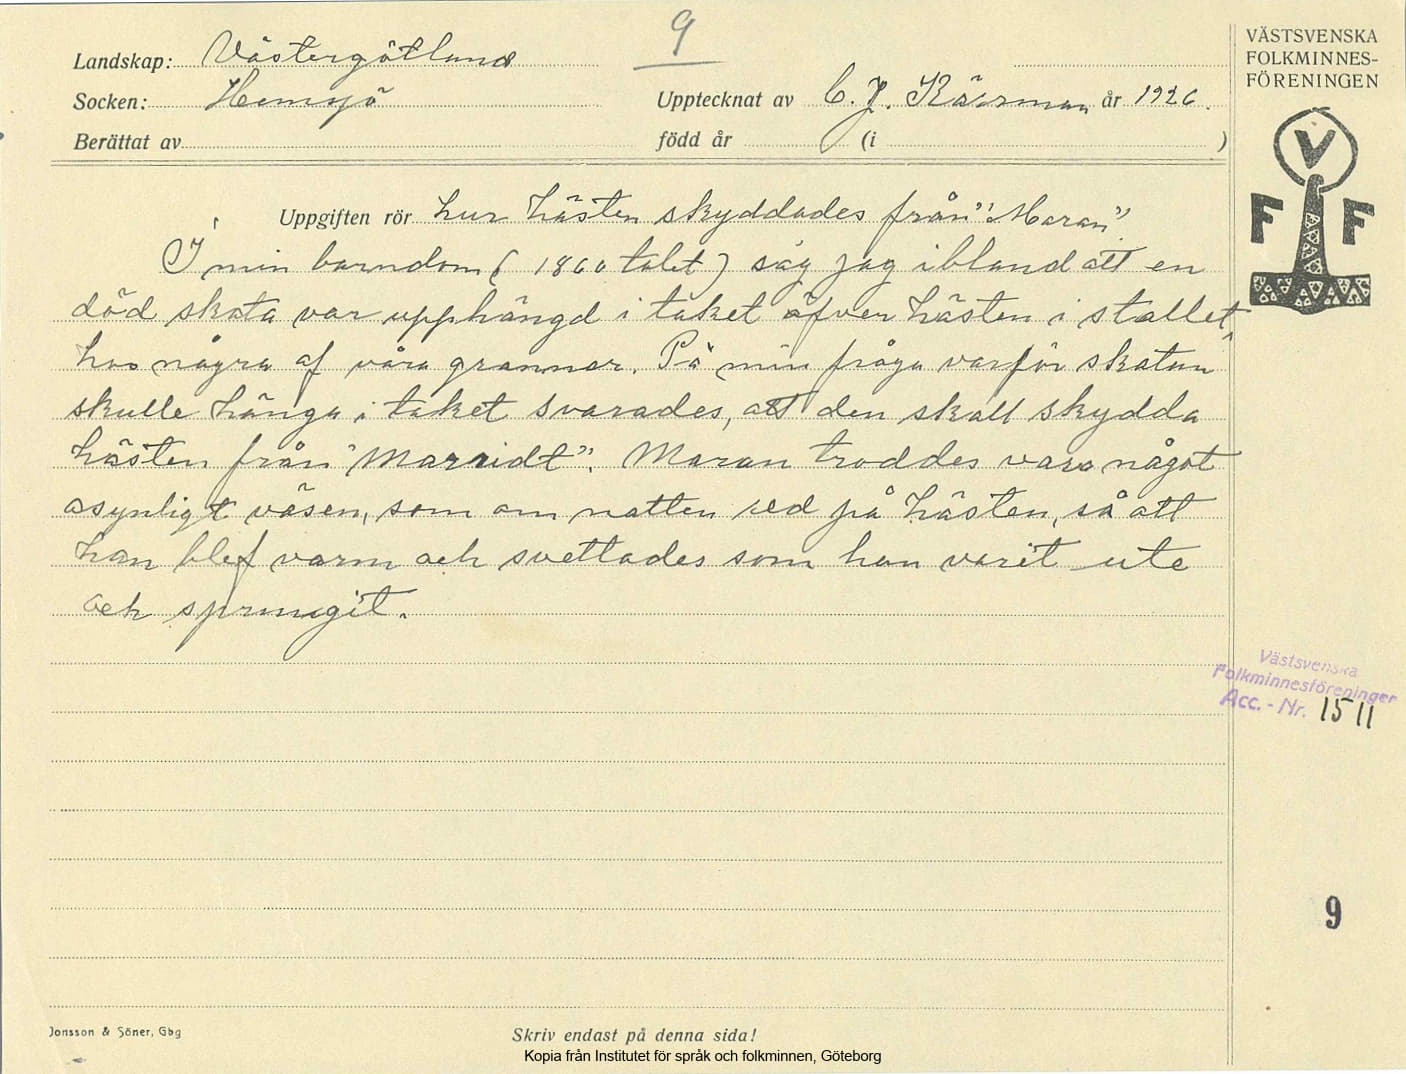 9
Landskap: Västergötland
Socken: Hemsjö
Upptecknat av C. J. Kärrman år 1926.
Berättat av
född år (i )
VÄSTSVENSKA
FOLKMINNES-
FÖRENINGEN
V
F F
Uppgiften rör hur hästen skyddades från "Maran".
I min barndom (1860 talet) såg jag ibland att en
död skata var upphängd i taket öfver hästen i stallet,
hos några af våra grannar. På min fråga varför skatan
skulle hänga i taket svarades, att den skall skydda
hästen från "Marridt". Maran troddes vara något
osynligt väsen, som om natten red på hästen, så att
han blef varm och svettades som han varit ute
och sprungit.
Västsvenska
Folkminnesföreningen
Acc. - Nr. 1511
9
Jonsson & Söner, Gbg
Skriv endast på denna sida!
Kopia från Institutet för språk och folkminnen, Göteborg